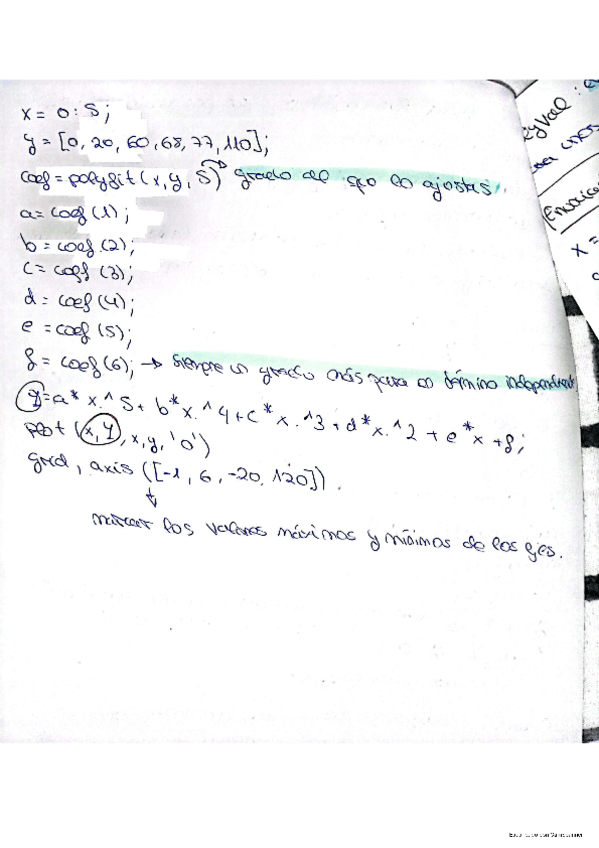 x = 0:5;
y = [0, 20, 60, 68, 77, 110];
coef = polyfit (x, y, 5) → grado al que lo ajustas.
a = coef (1);
b = coef (2);
c = coef (3);
d = coef (4);
e = coef (5);
f = coef (6); → siempre un grado más para el término independient
Y = a* x.^5 + b* x.^4 + c* x.^3 + d* x.^2 + e* x + f;
plot (x, Y, x, y, 'o')
grid, axis ([-1, 6, -20, 120]).
marcar los valores máximos y mínimos de los ejes.
x =